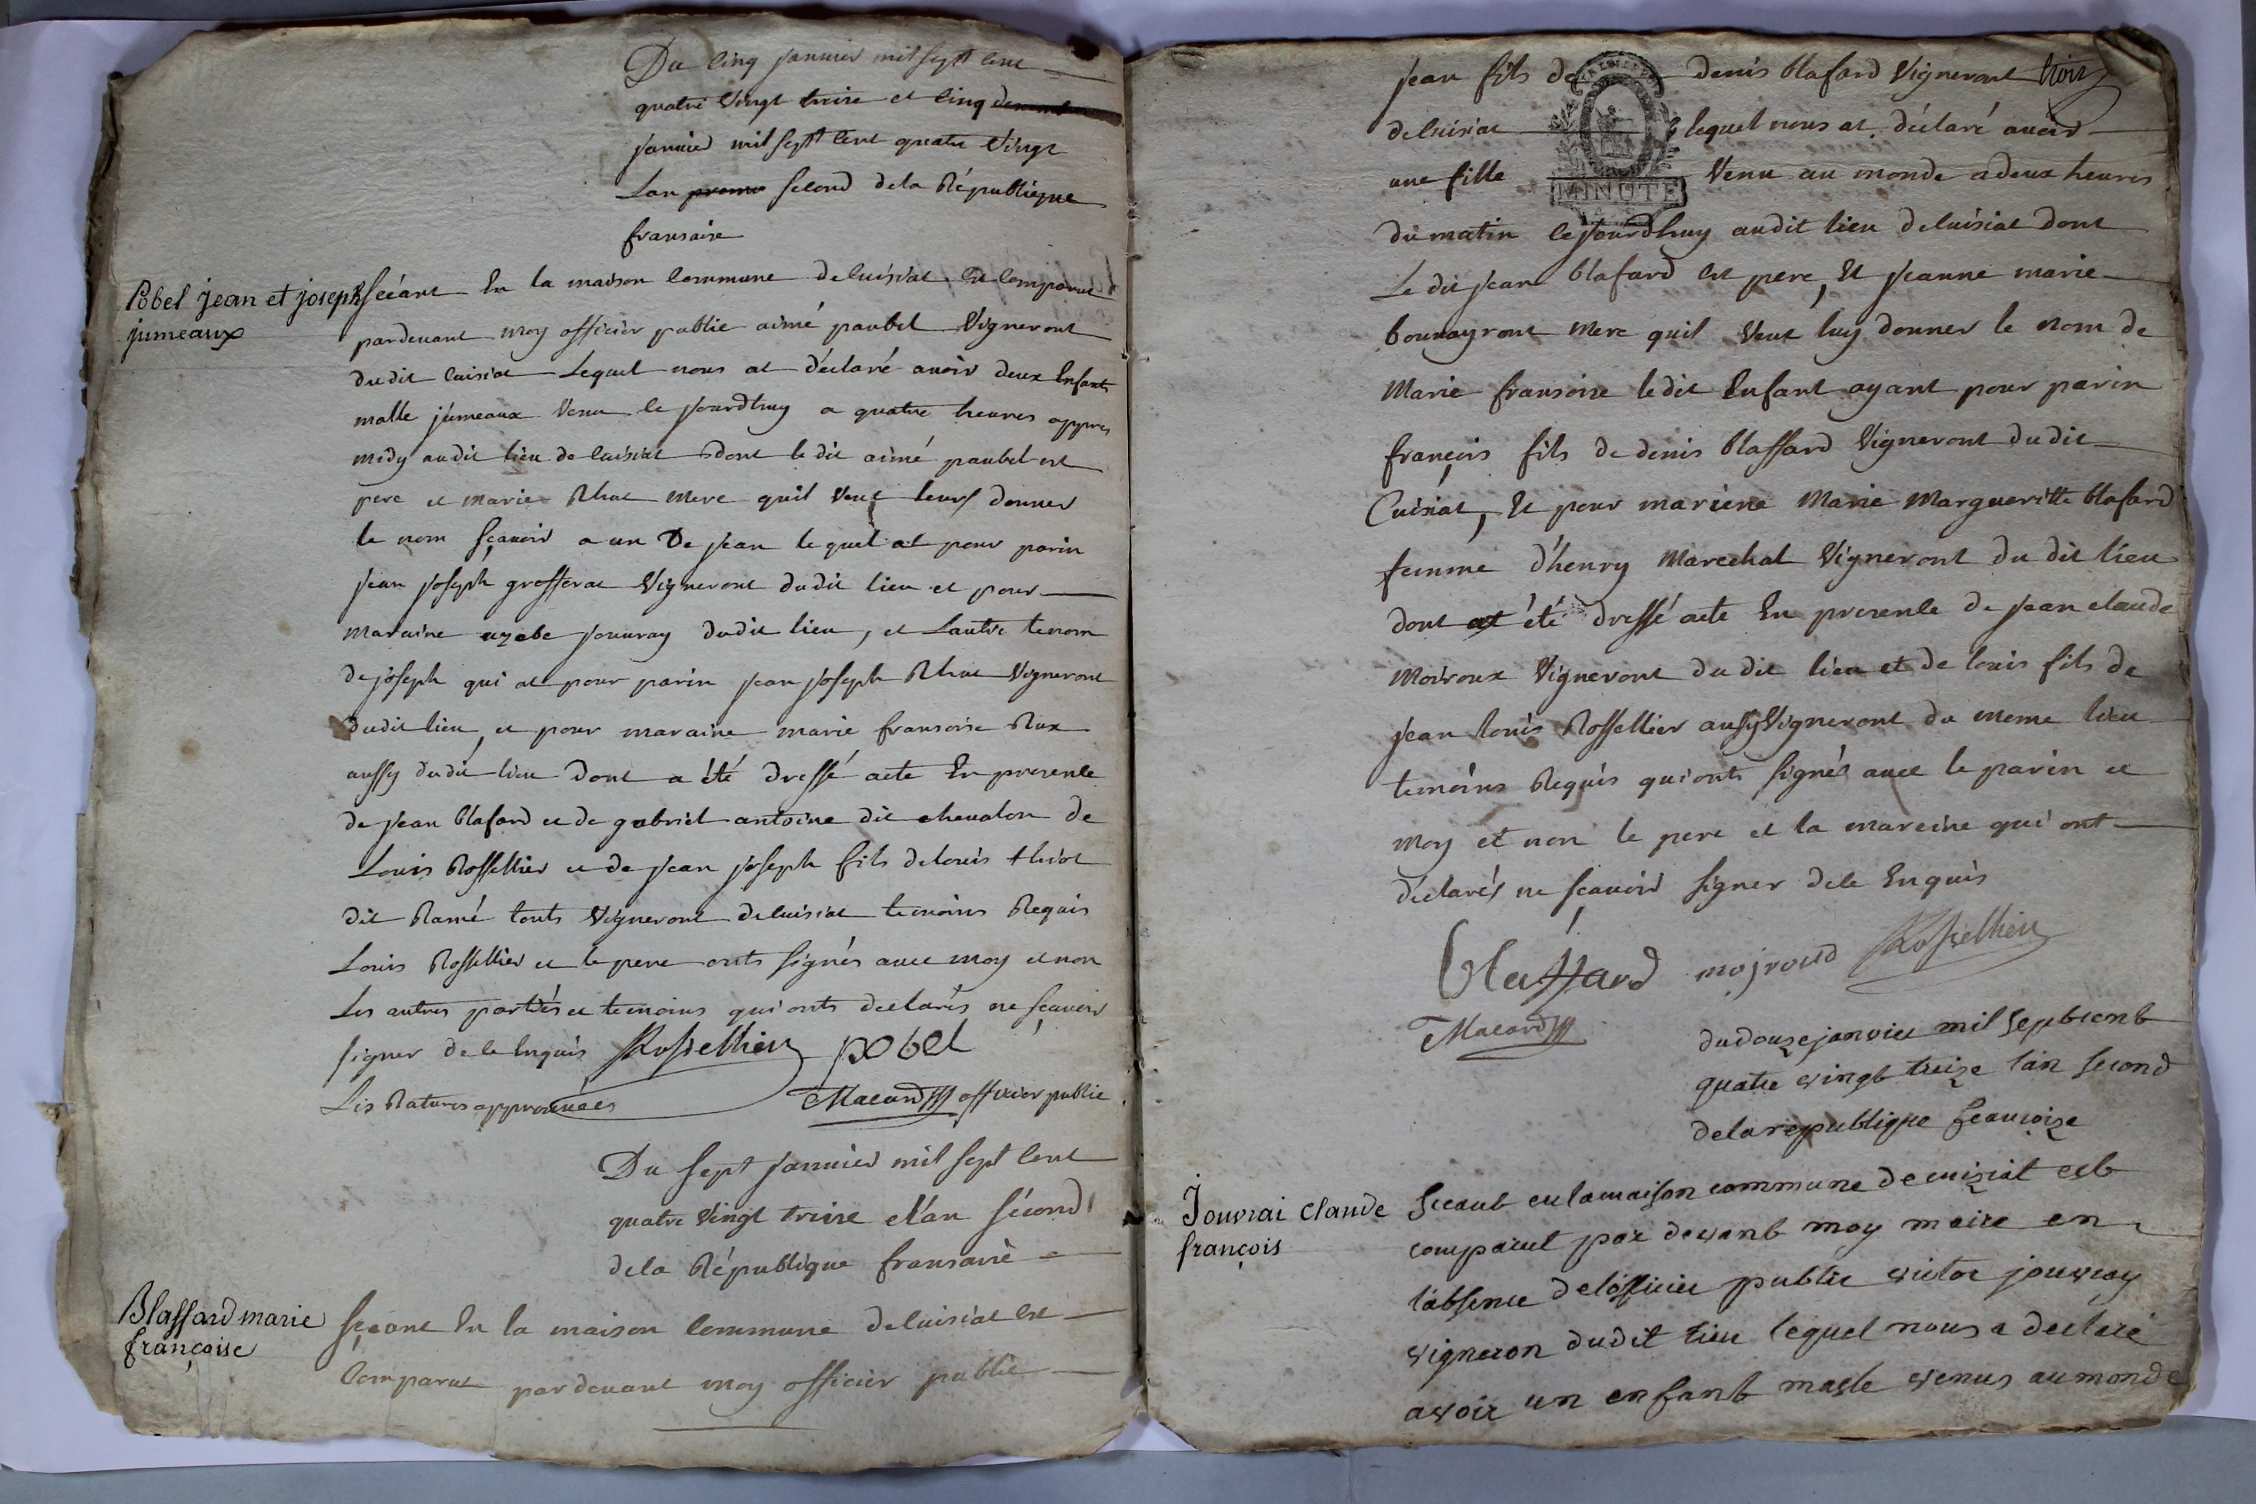 Du Cinq janvier mil sept Cent
quatre Vingt treize et Cinq
janvier mil sept Cent quatre Vingt
Lan second dela République
fransaise
Pobel jean et joseph
jumeaux
Scéant En la maison Commune deCuisiat Est Comparut
pardevant moy officier public aimé paubel Vigneront
dudit Cuisiat Lequel nous at déclaré avoir deux Enfants
malle jumeaux Venu le jourdhuy a quatre heures appres
midy audit lieu de Cuisiat dont le dit aimé paubel est
pere et marie Rhat mere quil Veut leurs donner
le nom sçavoir a un De jean lequel at pour parin
jean joseph grosferat Vigneront dudit lieu et pour
maraine uzebe jouvray dudit lieu, et Lautre lenom
de joseph qui at pour parin jean joseph Rhat Vigneront
dudit lieu, et pour maraine marie fransoise Rux
aussy dudit lieu Dont a été dressé acte En presente
de jean blafard et de gabriel antoine dit chevalon de
Louis Rossellier et de jean joseph fils delouis thiot
dit Ramé touts Vigneront deCuisiat temoins Requis
Louis Rossellier et le pere onts signés avec moy et non
Les autres partiés et temoins qui onts declarés ne sçavoir
signer de ce Enquis Rossellier pobel
Les Ratures approuvéés Macard officier public
Du sept janvier mil sept Cent
quatre Vingt treize et lan sécond
dela République fransaise
Blaffard marie
françoise
sçeant En la maison Commune deCuisiat est
Comparut pardevant moy officier public
jean fils de denis blafard Vigneront trois
deCuisiat lequel nous at déclaré avoir
une fille MINUTE Venu au monde adeux heures
du matin cejourdhuy audit lieu deCuisiat dont
Le dit jean blafard est pere, Et jeanne marie
bouvayront mere quil Veut luy donner le nom de
Marie fransoise ledit Enfant ayant pour parin
françois fils de denis blaffard Vigneront dudit
Cuisiat, Et pour mariene Marie Margueritte blafard
femme d'henry Marechal Vigneront du dit lieu
dont at été dressé acte En presente de jean claude
moiroux Vigneront du dit lieu et de louis fils de
jean louis Rossellier aussy Vigneront du meme lieu
temoins Requis qui onts signés avec le parin et
moy et non le pere et la mareine qui ont
déclarés ne sçavoir signer de ce Enquis
blaffard mojroud Rossellier
Macard
du douze janvier mil sept cent
quatre vingt treize l'an second
de la republique francoize
Jouvrai claude
françois
Sceant en la maison commune de cuiziat est
comparut par devant moy maire en
l'absence de l'officier public victor jouvray
vigneron dudit lieu lequel nous a declaré
avoir un enfant masle venus au monde